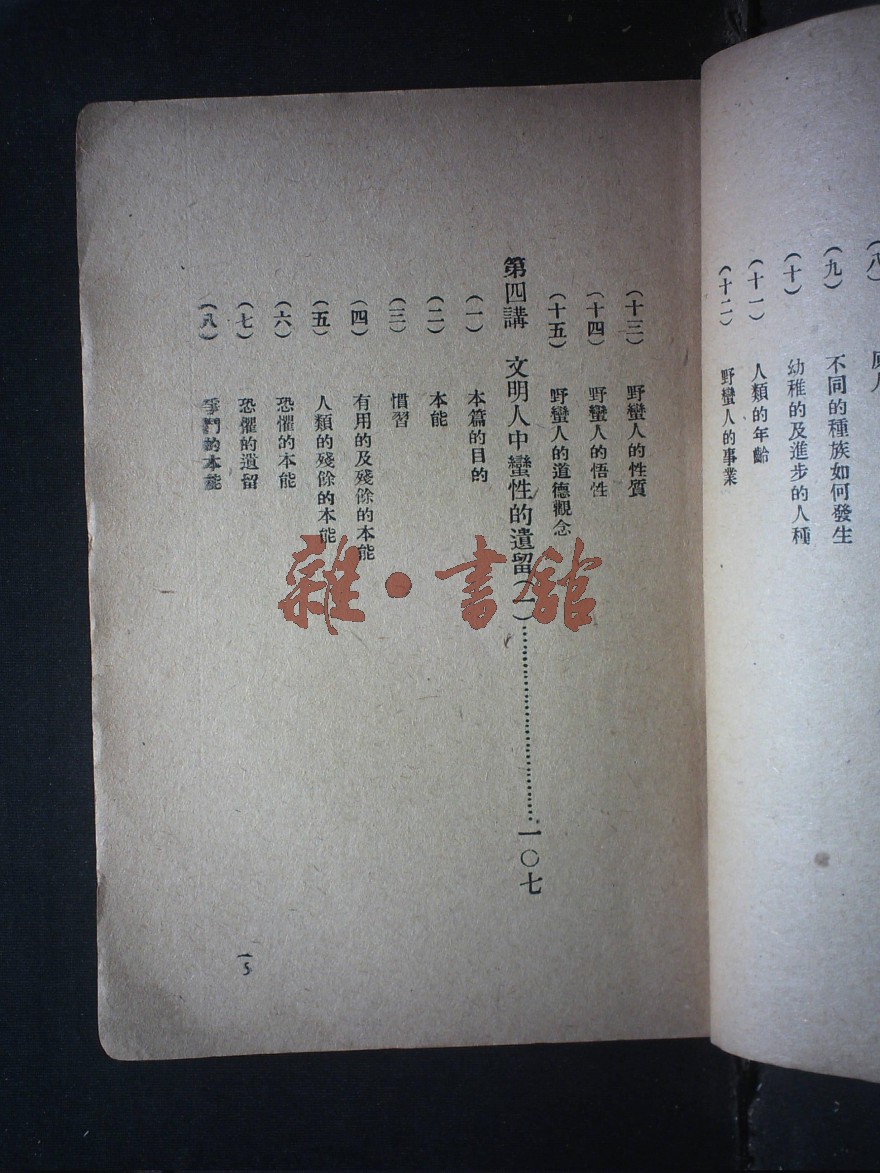 (八)
(九) 不同的種族如何發生
(十) 幼稚的及進步的人種
(十一) 人類的年齡
(十二) 野蠻人的事業
(十三) 野蠻人的性質
(十四) 野蠻人的悟性
(十五) 野蠻人的道德觀念
第四講 文明人中蠻性的遺留(一)……………………一〇七
(一) 本篇的目的
(二) 本能
(三) 慣習
(四) 有用的及殘餘的本能
(五) 人類的殘餘的本能
(六) 恐懼的本能
(七) 恐懼的遺留
(八) 爭鬥的本能
5
雜·書館